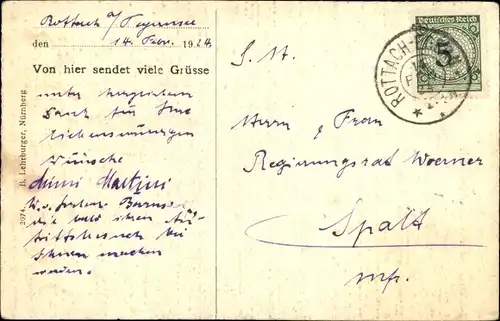 Rottach a/Tegernsee
den 14. Febr. 1924
Von hier sendet viele Grüsse
unter herzlichem
Dank für Ihre
liebenswürdigen
Wünsche
Mimi Martini
die bald ihren An-
trittsbesuch bei
Ihnen machen
werden.
2074. B. Lehrburger, Nürnberg
S. H.
Herrn & Frau
Regierungsrat Woerner
Spalt
Mfr.
Deutsches Reich
5
ROTTACH-